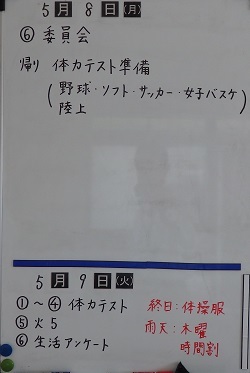 5月8日(月)
⑥委員会
帰り 体力テスト準備
(野球・ソフト・サッカー・女子バスケ
陸上)
5月9日(火)
①~④体力テスト
⑤火5
⑥生活アンケート
終日:体操服
雨天:木曜
時間割